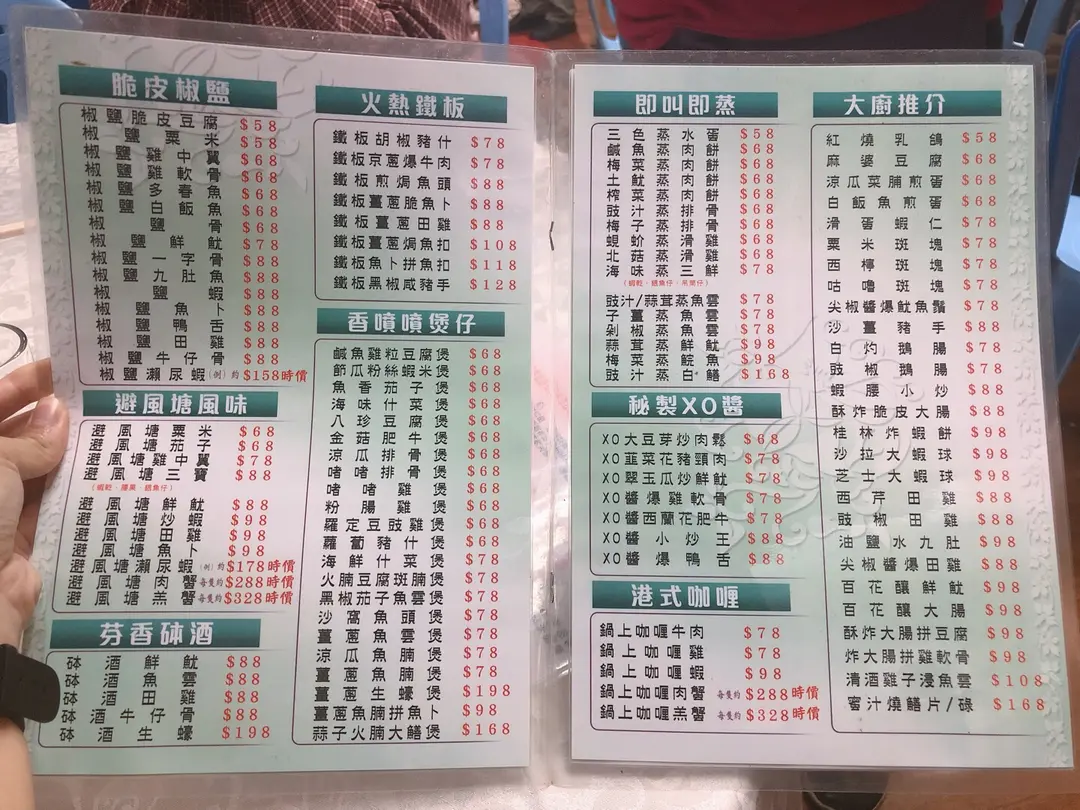 脆皮椒鹽
椒鹽脆皮豆腐 $58
椒鹽粟米 $58
椒鹽雞中翼 $68
椒鹽雞軟骨 $68
椒鹽多春魚 $68
椒鹽白飯魚 $68
椒鹽骨 $68
椒鹽鮮魷 $78
椒鹽一字骨 $88
椒鹽九肚魚 $88
椒鹽蝦 $88
椒鹽魚卜 $88
椒鹽鴨舌 $88
椒鹽田雞 $88
椒鹽牛仔骨 $88
椒鹽瀨尿蝦(例)約$158時價
避風塘風味
避風塘粟米 $68
避風塘茄子 $68
避風塘雞中翼 $78
避風塘三寶 $88
避風塘鮮魷 $88
避風塘炒蝦 $98
避風塘田雞 $98
避風塘魚卜 $98
避風塘瀨尿蝦(例)約$178時價
避風塘肉蟹每隻約$288時價
避風塘羔蟹每隻約$328時價
芬香砵酒
砵酒鮮魷 $88
砵酒魚雲 $88
砵酒田雞 $88
砵酒牛仔骨 $88
砵酒生蠔 $198
火熱鐵板
鐵板胡椒豬什 $78
鐵板京蔥爆牛肉 $78
鐵板煎焗魚頭 $88
鐵板薑蔥脆魚卜 $88
鐵板薑蔥田雞 $88
鐵板薑蔥焗魚扣 $108
鐵板魚卜拼魚扣 $118
鐵板黑椒咸豬手 $128
香噴噴煲仔
鹹魚雞粒豆腐煲 $68
節瓜粉絲蝦米煲 $68
魚香茄子煲 $68
海味什菜煲 $68
八珍豆腐煲 $68
金菇肥牛煲 $68
涼瓜排骨煲 $68
啫啫排骨煲 $68
啫啫雞煲 $68
粉腸雞煲 $68
羅定豆豉雞煲 $68
蘿蔔豬什煲 $68
海鮮什菜煲 $78
火腩豆腐斑腩煲 $78
黑椒茄子魚雲煲 $78
沙窩魚頭煲 $78
薑蔥魚雲煲 $78
涼瓜魚腩煲 $78
薑蔥魚腩煲 $78
薑蔥生蠔煲 $198
薑蔥魚腩拼魚卜 $98
蒜子火腩大鱔煲 $168
即叫即蒸
三色蒸水蛋 $58
鹹魚蒸肉餅 $68
梅菜蒸肉餅 $68
土魷蒸肉餅 $68
榨菜蒸肉餅 $68
豉汁蒸排骨 $68
梅子蒸排骨 $68
蜆蚧蒸滑雞 $68
北菇蒸滑雞 $68
海味蒸三鮮 $78
豉汁/蒜茸蒸魚雲 $78
子薑蒸魚雲 $78
剁椒蒸魚雲 $78
蒜茸蒸鮮魷 $98
梅菜蒸鯇魚 $98
豉汁蒸白鱔 $168
秘製XO醬
XO大豆芽炒肉鬆 $68
XO韮菜花豬頸肉 $78
XO翠玉瓜炒鮮魷 $78
XO醬爆雞軟骨 $78
XO醬西蘭花肥牛 $78
XO醬小炒王 $88
XO醬爆鴨舌 $88
港式咖喱
鍋上咖喱牛肉 $78
鍋上咖喱雞 $78
鍋上咖喱蝦 $98
鍋上咖喱肉蟹每隻約$288時價
鍋上咖喱羔蟹每隻約$328時價
大廚推介
紅燒乳鴿 $58
麻婆豆腐 $68
涼瓜菜脯煎蛋 $68
白飯魚煎蛋 $68
滑蛋蝦仁 $78
粟米斑塊 $78
西檸斑塊 $78
咕嚕斑塊 $78
尖椒醬爆魷魚鬚 $78
沙薑豬手 $88
白灼鵝腸 $78
豉椒鵝腸 $78
蝦腰小炒 $88
酥炸脆皮大腸 $88
桂林炸蝦餅 $98
沙拉大蝦球 $98
芝士大蝦球 $98
西芹田雞 $88
豉椒田雞 $88
油鹽水九肚 $98
尖椒醬爆田雞 $88
百花釀鮮魷 $98
百花釀大腸 $98
酥炸大腸拼豆腐 $98
炸大腸拼雞軟骨 $98
清酒雞子浸魚雲 $108
蜜汁燒鱔片/碌 $168